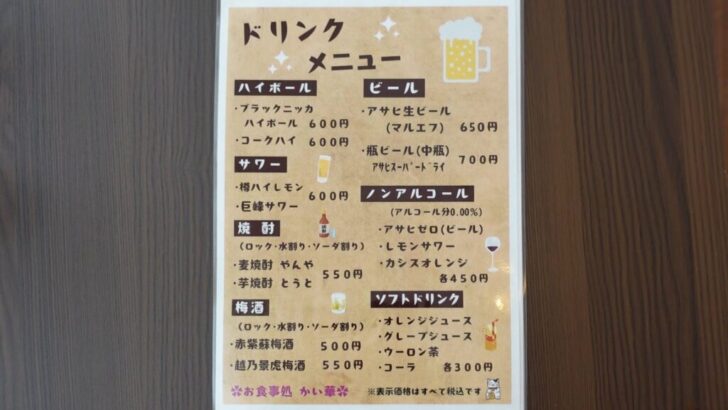 ドリンク
メニュー
ハイボール
・ブラックニッカ
ハイボール 600円
・コークハイ 600円
サワー
・樽ハイレモン
・巨峰サワー
600円
焼酎
(ロック・水割り・ソーダ割り)
・麦焼酎 やんや
・芋焼酎 とうと
550円
梅酒
(ロック・水割り・ソーダ割り)
・赤紫蘇梅酒 500円
・越乃景虎梅酒 550円
ビール
・アサヒ生ビール
(マルエフ) 650円
・瓶ビール(中瓶)
アサヒスーパードライ
700円
ノンアルコール
(アルコール分0.00%)
・アサヒゼロ(ビール)
・レモンサワー
・カシスオレンジ
各450円
ソフトドリンク
・オレンジジュース
・グレープジュース
・ウーロン茶
・コーラ 各300円
お食事処 かい華
※表示価格はすべて税込です